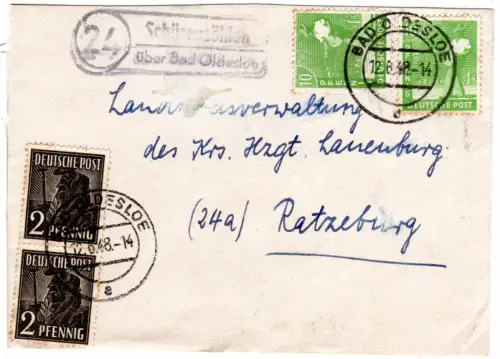 24
Schürensöhlen
über Bad Oldesloe
BAD OLDESLOE
12.6.48.-14
a
10
PFENNIG
DEUTSCHE POST
Landkreisverwaltung
des Krs. Hzgt. Lauenburg
(24a) Ratzeburg
DEUTSCHE POST
2
PFENNIG
DESLOE
12.6.48.-14
a
DEUTSCHE POST
2
PFENNIG